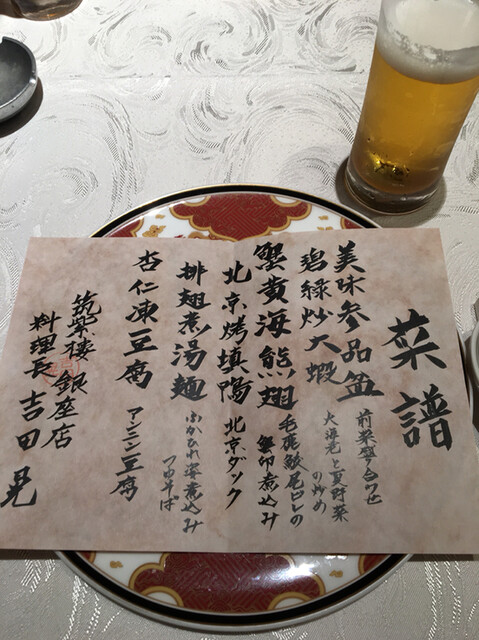 菜譜
美味参品盆
前菜盛り合わせ
碧緑炒大蝦
大海老と夏野菜
の炒め
蟹黄海熊翅
毛鹿鮫尾ビレの
蟹卵煮込み
北京烤填鴨
北京ダック
排翅煮湯麺
ふかひれ姿煮込み
つゆそば
杏仁凍豆腐
アンニン豆腐
筑紫楼銀座店
料理長 吉田晃